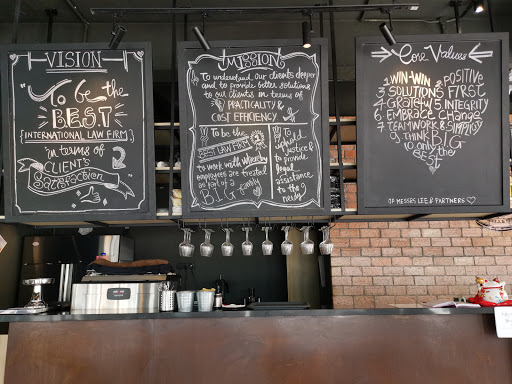 VISION
"To be the
BEST
[INTERNATIONAL LAW FIRM]
in terms of
CLIENT'S
Satisfaction
Mission
To understand our clients deeper
and to provide better solutions
to our clients in terms of
PRACTICALITY &
COST EFFICIENCY
To be the
BEST LAW FIRM
to work with where
employees are treated
as part of a
BIG family
To uphold
justice &
to provide
legal
assistance
to the
needy
Core Values
1 WIN-WIN 2 POSITIVE
3 SOLUTIONS FIRST
4 GRATEFUL 5 INTEGRITY
6 EMBRACE CHANGE
7 TEAMWORK & SIMPLICITY
9 THINK BIG
10 ONLY THE
BEST
OF MESSRS LEE & PARTNERS